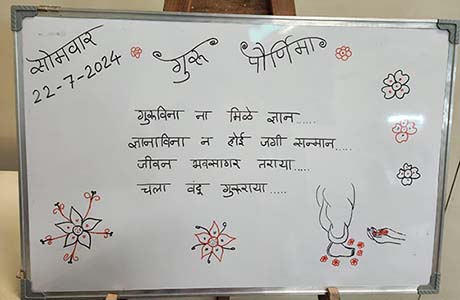 सोमवार
22-7-2024
गुरू पौर्णिमा
गुरूविना ना मिळे ज्ञान.....
ज्ञानाविना न होई जगी सन्मान.....
जीवन भवसागर तराया.....
चला वंदू गुरूराया.....